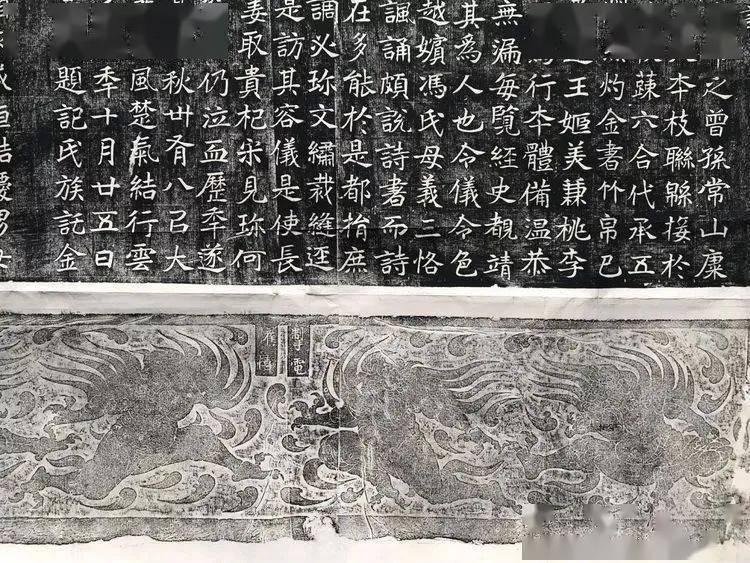 之曾孫常山康
夲枝聯緜接於
踈六合代承五
灼金書竹帛巳
王姬美蒹桃李
行夲體俻温恭
無漏每覧經史覩靖
其為人也令儀令色
越嬪馮氏母義三恪
諷誦頗說詩書而詩
在多能於是都捐庶
調必珎文繡裁縫迳
是訪其容儀是使長
妻取貴杞宋見珎何
仍泣血歷秊遂
秋丗有八召大
風楚氣結行雲
秊十月廿五日
題記氏族託金
電